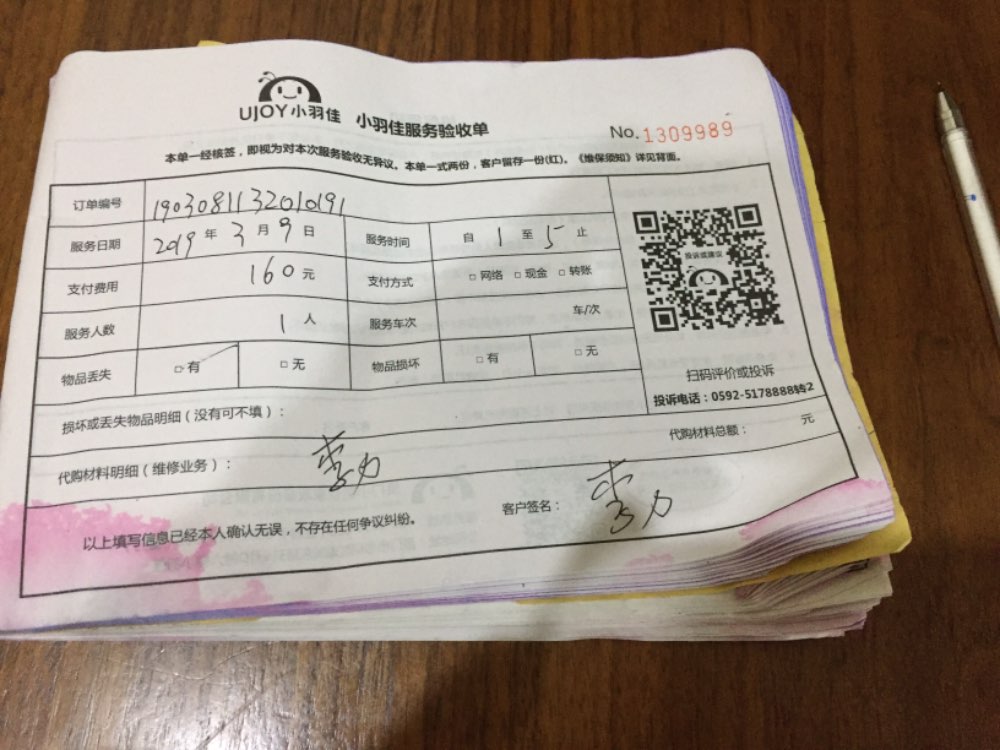 UJOY小羽佳 小羽佳服务验收单
No.1309989
本单一经核签，即视为对本次服务验收无异议。本单一式两份，客户留存一份(红)。《维保须知》详见背面。
订单编号 1903081132010191
服务日期 2019 年 3 月 9 日 服务时间 自 1 至 5 止
支付费用 160 元 支付方式 □ 网络 □ 现金 □ 转账
服务人数 1 人 服务车次 车/次
物品丢失 □ 有 □ 无 物品损坏 □ 有 □ 无
投诉或建议
扫码评价或投诉
投诉电话：0592-5178888转2
损坏或丢失物品明细（没有可不填）：
代购材料明细（维修业务）： 代购材料总额： 元
李力
以上填写信息已经本人确认无误，不存在任何争议纠纷。 客户签名： 李力